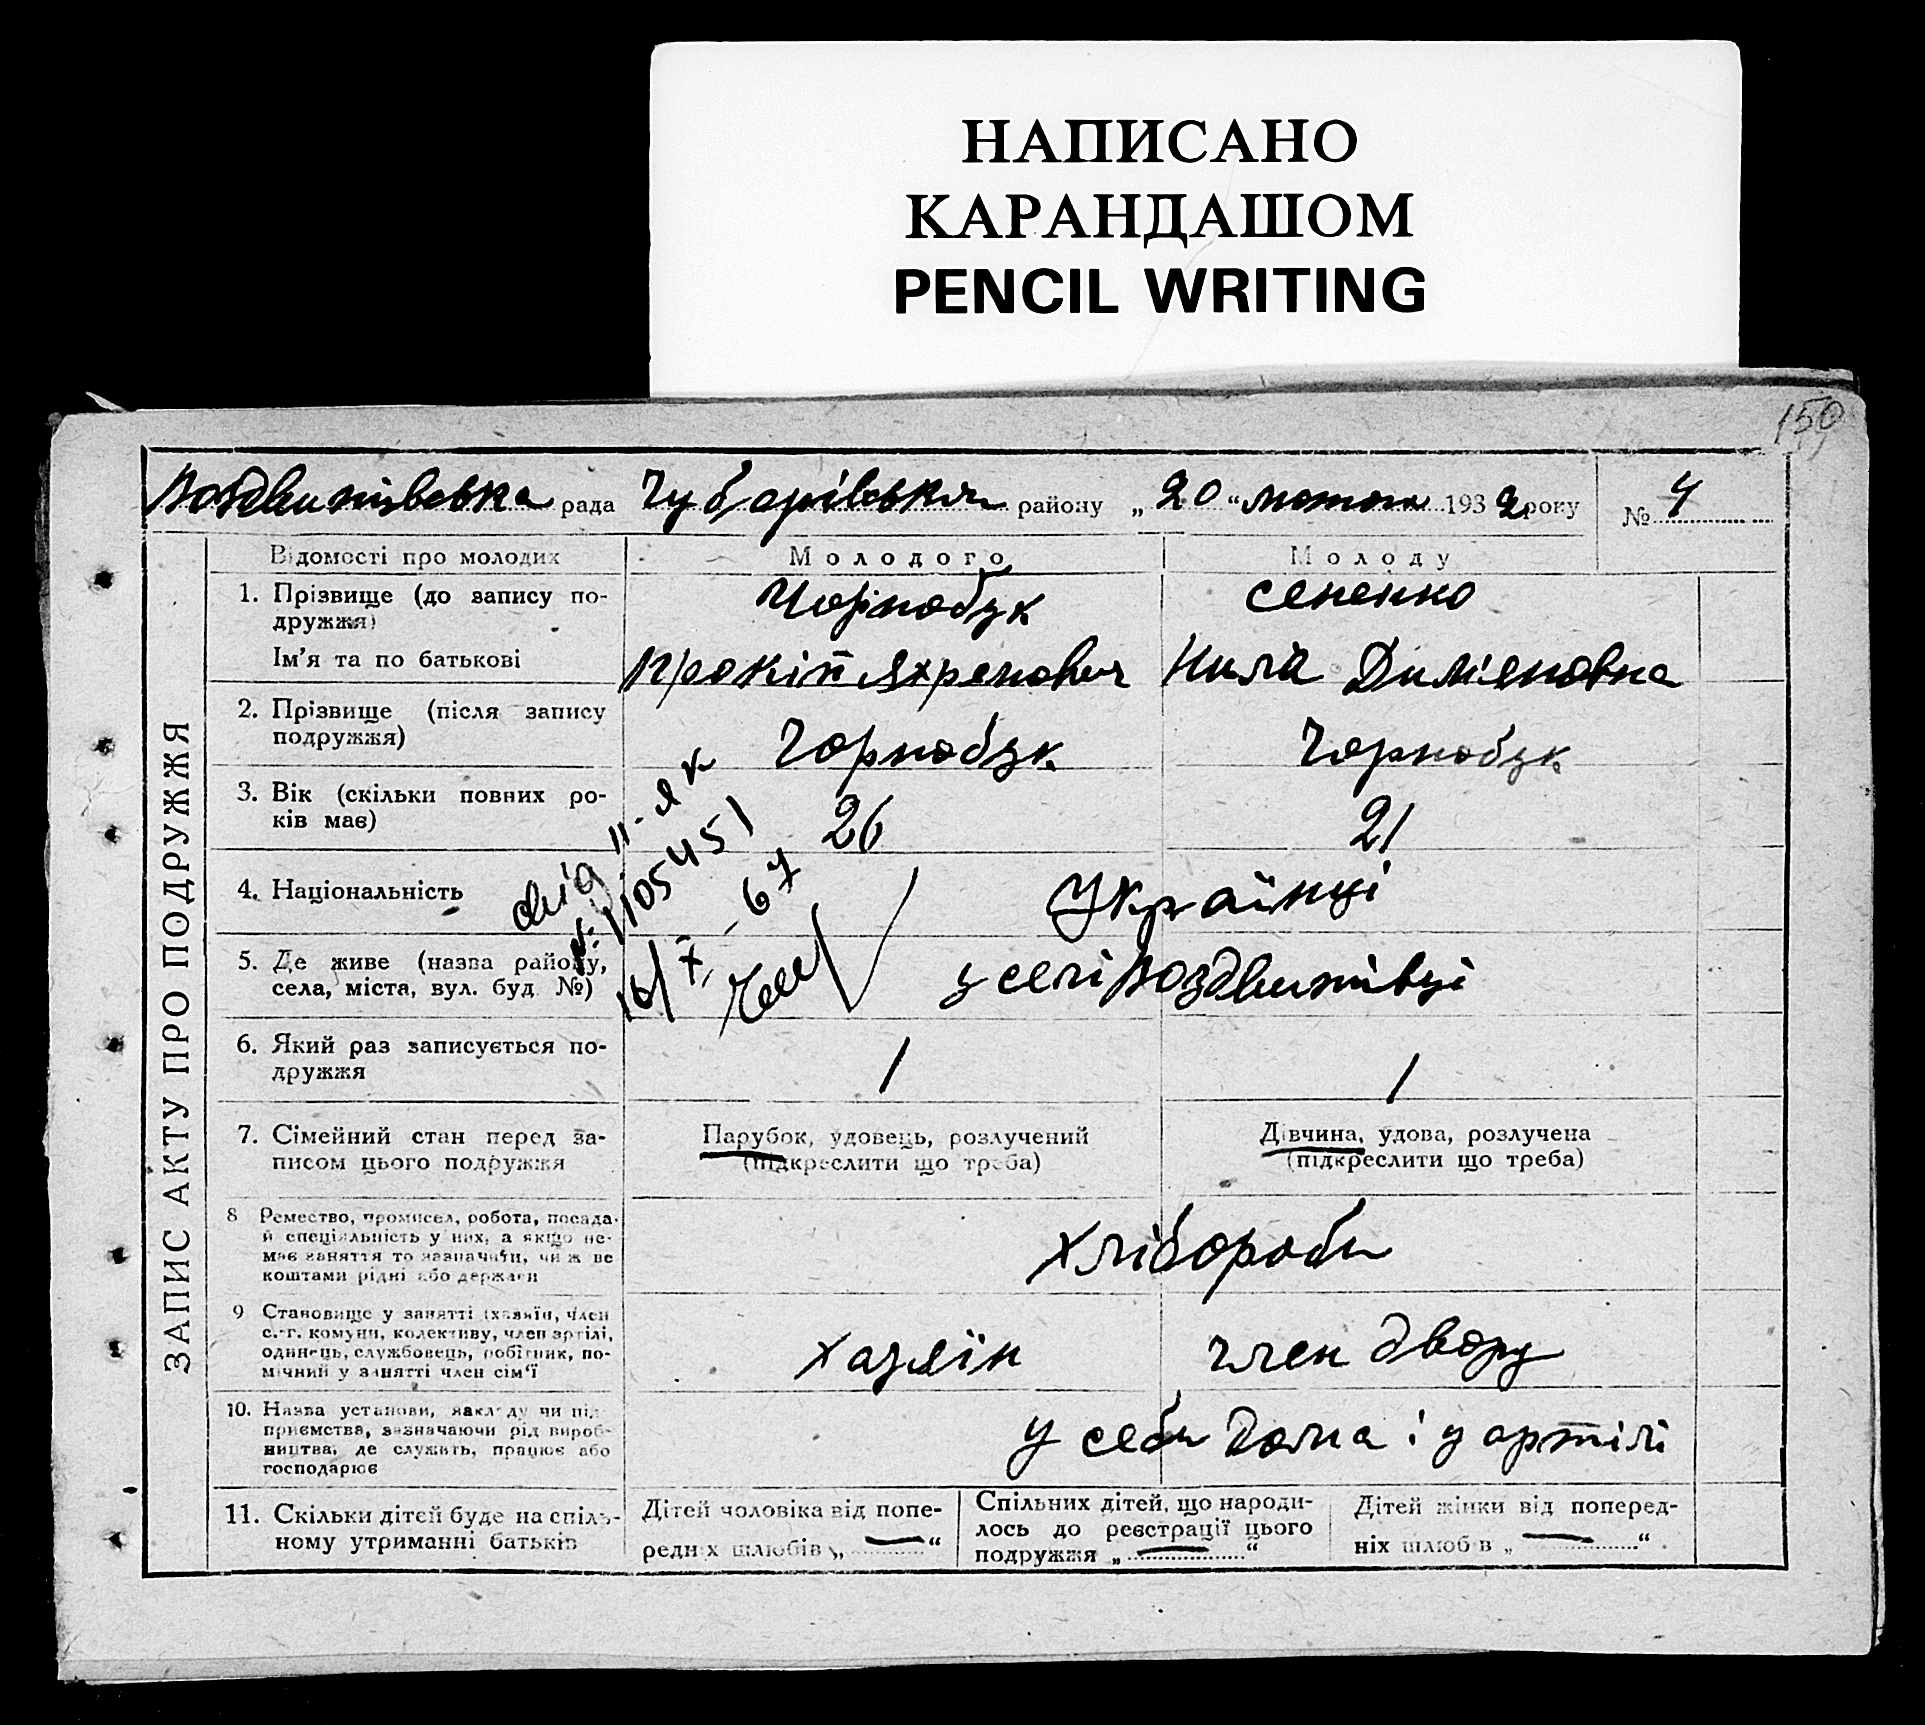 НАПИСАНО
КАРАНДАШОМ
PENCIL WRITING
150
Воздвижівська рада Чубарівський району „20“ лютого 1932 року № 4
ЗАПИС АКТУ ПРО ПОДРУЖЖЯ
Відомості про молодих Молодого Молоду
1. Прізвище (до запису по-
дружжя) Чорнобук Сененко
Ім'я та по батькові Прокіп Нила Дим'яновна
2. Прізвище (після запису
подружжя) Чорнобук Чорнобук
3. Вік (скільки повних ро-
ків має) 26 21
ІІ-ЯК
№ 1105451
16/X-67
4. Національність Українці
5. Де живе (назва району,
села, міста, вул. буд №) у селі Воздвижівці
6. Який раз записується по-
дружжя 1 1
7. Сімейний стан перед за-
писом цього подружжя
Парубок, удовець, розлучений
(підкреслити що треба)
Дівчина, удова, розлучена
(підкреслити що треба)
8 Ремество, промисел, робота, посада
й спеціяльність у них, а якщо не-
має заняття то зазначити, чи ж не
коштами рідні або держави
хлібороби
9 Становище у занятті (хазяїн, член
с.-г. комуни, колективу, член артілі,
одинець, службовець, робітник, по-
мічний у занятті член сім'ї
хазяїн член двору
10. Назва установи, закладу чи під-
приємства, зазначаючи рід вироб-
ництва, де служить, працює або
господарює
у себе дома і у артілі
11. Скільки дітей буде на спіль-
ному утриманні батьків
Дітей чоловіка від попе-
редніх шлюбів „—“
Спільних дітей, що народи-
лось до реєстрації цього
подружжя „—“
Дітей жінки від поперед-
ніх шлюбів „—“